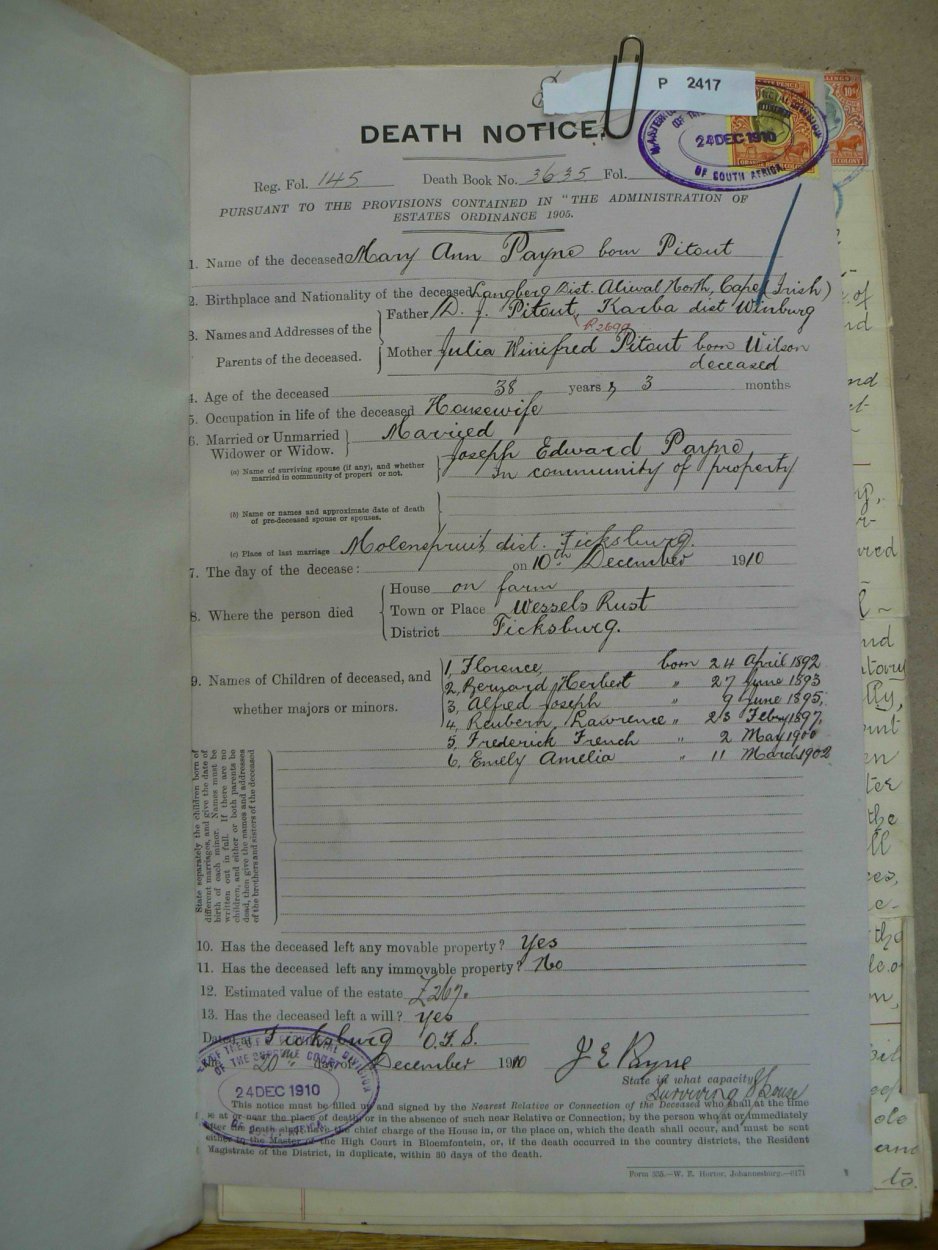 P 2417
DEATH NOTICE.
24 DEC 1910
OF SOUTH AFRICA
Reg. Fol. 145 Death Book No. 3635 Fol.
PURSUANT TO THE PROVISIONS CONTAINED IN "THE ADMINISTRATION OF
ESTATES ORDINANCE 1905.
1. Name of the deceased Mary Ann Payne born Pitout
2. Birthplace and Nationality of the deceased Langberg Dist. Aliwal North, Cape (Irish)
3. Names and Addresses of the Parents of the deceased.
Father D. J. Pitout, Karba dist Winburg
Mother Julia Winifred Pitout born Wilson
deceased
4. Age of the deceased 38 years & 3 months
5. Occupation in life of the deceased Housewife
6. Married or Unmarried Widower or Widow. Married
(a) Name of surviving spouse (if any), and whether married in community of propert or not.
Joseph Edward Payne
In community of property
(b) Name or names and approximate date of death of pre-deceased spouse or spouses.
(c) Place of last marriage Molenspruit dist. Ficksburg.
7. The day of the decease: on 10th December 1910
8. Where the person died
House on farm
Town or Place Wessels Rust
District Ficksburg.
9. Names of Children of deceased, and
whether majors or minors.
1, Florence, born 24 April 1892
2, Bernard Herbert " 27 June 1893
3, Alfred Joseph " 9 June 1895,
4, Reubern Lawrence " 23 Febry 1897,
5, Frederick French " 2 May 1900
6, Emily Amelia " 11 March 1902
State separately the children born of
different marriages, and give the date of
birth of each minor. Names must be
written out in full. If there are no
children, and either or both parents be
dead, then give the names and addresses
of the brothers and sisters of the deceased
10. Has the deceased left any movable property? Yes
11. Has the deceased left any immovable property? No
12. Estimated value of the estate £267.
13. Has the deceased left a will? Yes
Dated at Ficksburg O.F.S.
20th day of December 1910
J E Payne
State in what capacity
Surviving Spouse
24 DEC 1910
This notice must be filled and signed by the Nearest Relative or Connection of the Deceased who shall at the time
at or near the place of death, or in the absence of such near Relative or Connection; by the person who at or immediately
after the death shall have the chief charge of the House in, or the place on, which the death shall occur, and must be sent
either to the Master of the High Court in Bloemfontein, or, if the death occurred in the country districts, the Resident
Magistrate of the District, in duplicate, within 30 days of the death.
Form 335.—W. E. Hortor, Johannesburg.—6171